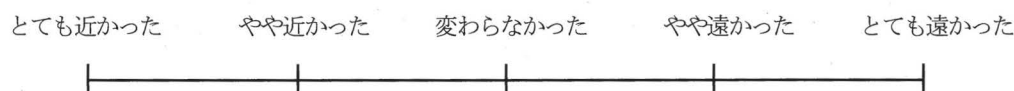 とても近かった やや近かった 変わらなかった やや遠かった とても遠かった